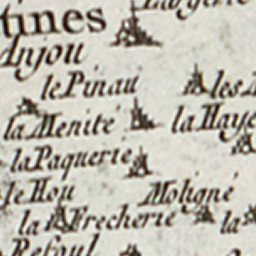 tines
Anjou
le Pinau
les
la Menité
la Haye
la Paquerie
le Hou
Moligné
la Frecherie
la
Refoul